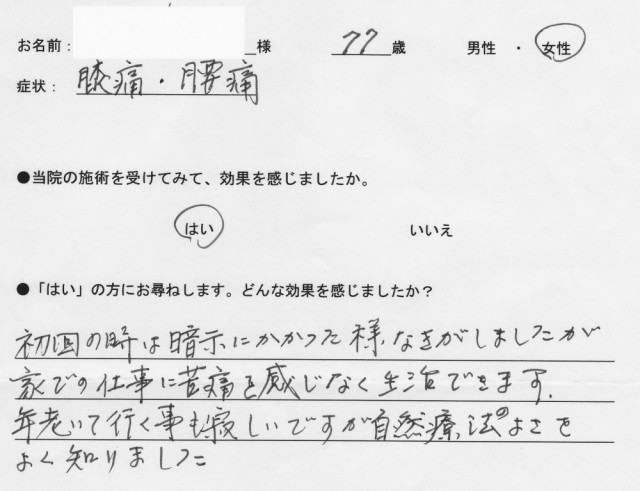 お名前： 様 77歳 男性 ・ 女性
症状： 膝痛・腰痛
●当院の施術を受けてみて、効果を感じましたか。
はい いいえ
●「はい」の方にお尋ねします。どんな効果を感じましたか？
初回の時は暗示にかかった様なきがしましたが
家での仕事に苦痛を感じなく生活できます.
年老いて行く事も寂しいですが自然療法のよさを
よく知りました